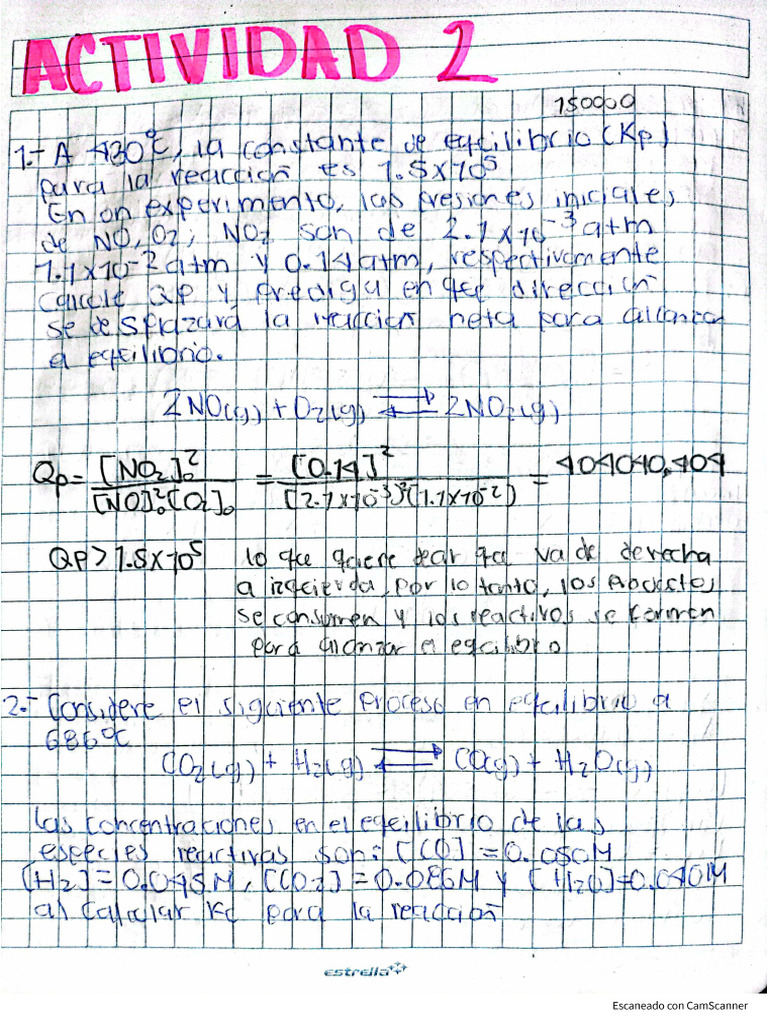 ACTIVIDAD 2
150000
1.- A 430°C, la constante de eqcilibrio (Kp)
para la reacción es 1.5x10⁵
En un experimento, las presiones iniciales
de NO, O₂, NO₂ son de 2.1x10⁻³ atm
1.1x10⁻² atm y 0.14 atm, respectivamente
Calcule Qp y prediga en que dirección
se desplazará la reacción neta para alcanzar
a eqcilibrio.
2NO(g) + O₂(g) ⇌ 2NO₂(g)
Qp = [NO₂]₀² / [NO]₀²[O₂]₀ = [0.14]² / (2.1x10⁻³)²(1.1x10⁻²) = 404040,404
Qp > 1.5x10⁵ lo que quiere decir que va de derecha
a izqcierda, por lo tanto, los Productos
se consumen y los reactivos se forman
para alcanzar el eqcilibrio
2.- Considere el sigciente proceso en eqcilibrio a
686°C
CO₂(g) + H₂(g) ⇌ CO(g) + H₂O(g)
Las concentraciones en el eqcilibrio de las
especies reactivas son: [CO] = 0.050M
[H₂] = 0.045M, [CO₂] = 0.086M y [H₂O] = 0.040M
a) Calcular Kc para la reacción
estrella
Escaneado con CamScanner